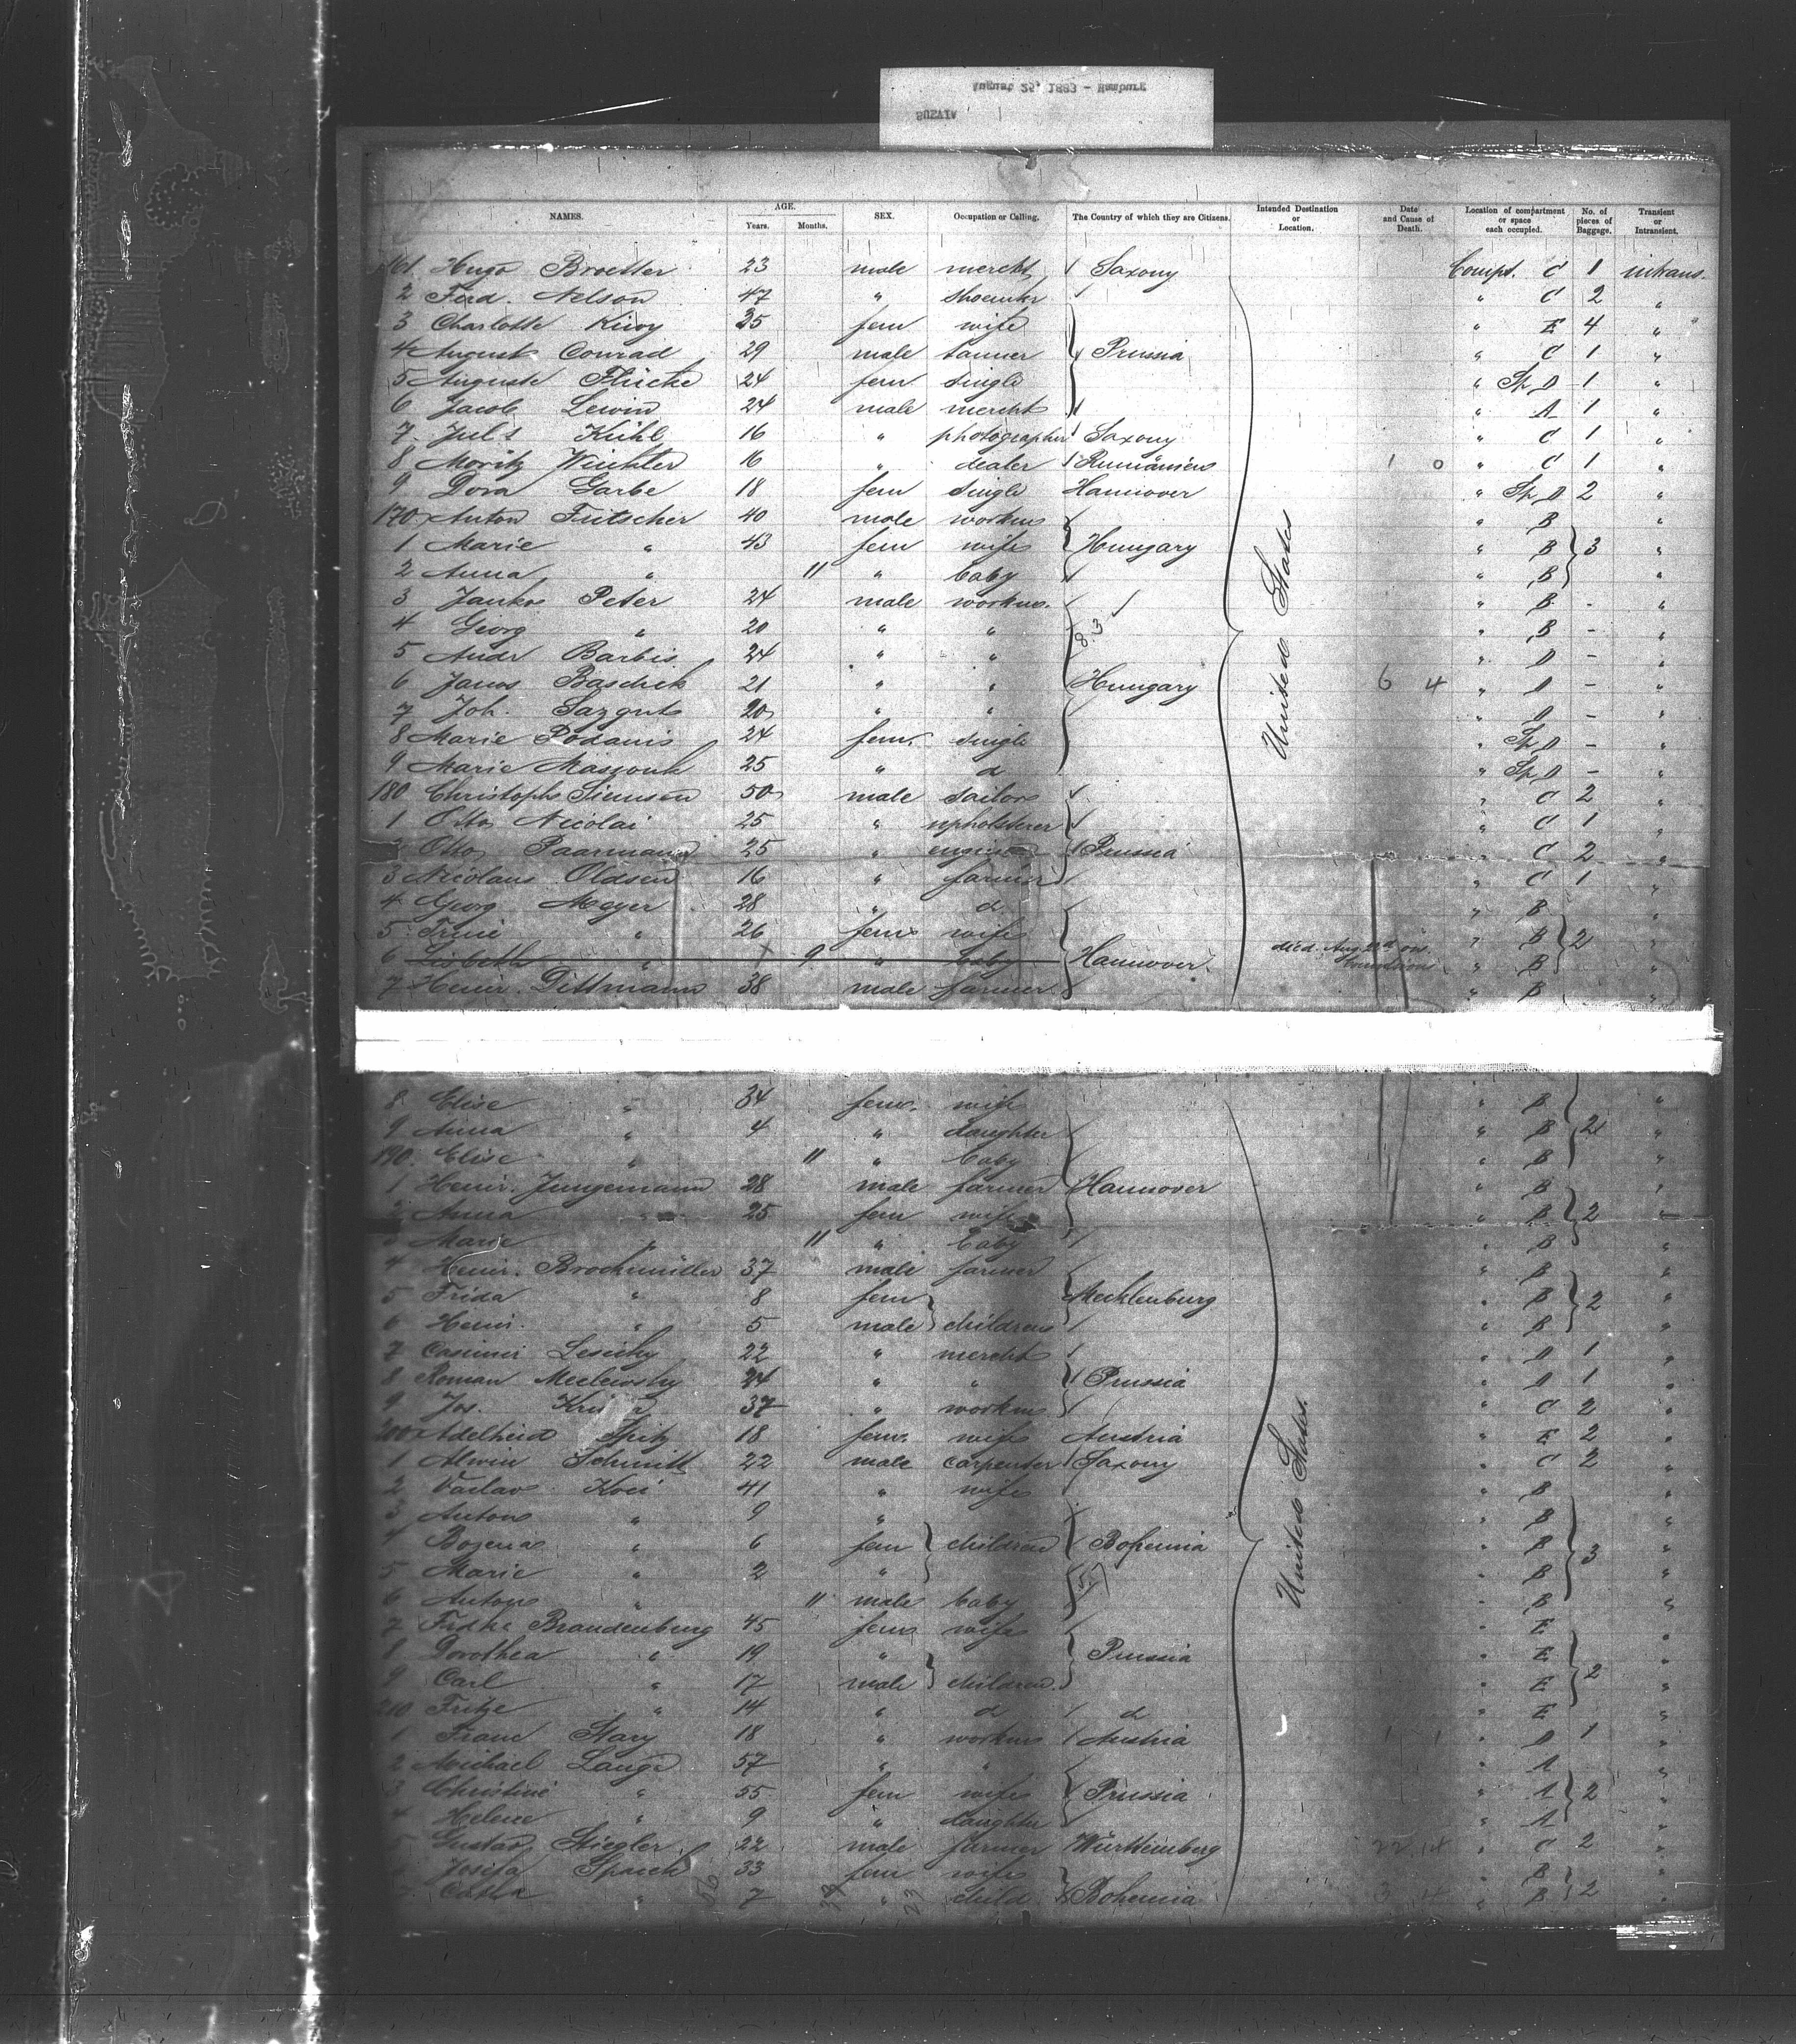 SUEVIA
August 25, 1883 - Hamburg
NAMES. AGE. Years. Months. SEX. Occupation or Calling. The Country of which they are Citizens. Intended Destination or Location. Date and Cause of Death. Location of compartment or space each occupied. No. of pieces of Baggage. Transient or Intransient.
161 Hugo 23 male mercht Saxony Compt. C 1 intrans.
2 Ferd. Nelson 47 " shoemkr " C 2 "
3 Charlotte 25 fem wife " E 4 "
4 August Conrad 29 male tanner Prussia " C 1 "
5 Auguste 24 fem single " Sp D 1 "
6 Jacob Lewin 24 male mercht " A 1 "
7 Jul's Kühl 16 " photographer Saxony " C 1 "
8 Moritz 16 " dealer Rumänien 1 0 " C 1 "
9 Dora Garbe 18 fem single Hannover " Sp D 2 "
170 Anton Fritscher 40 male workm " B "
1 Marie " 43 fem wife Hungary " B 3 "
2 Anna " 11 " baby " B "
3 Janko Peter 24 male workm. " B - "
4 Georg " 20 " " 83 " B - "
5 Andr Barbis 24 " " " D - "
6 Janos Baschik 21 " " Hungary 6 4 " D - "
7 Joh. 20 " " " D - "
8 Marie Podanis 24 fem. single " Sp D - "
9 Marie 25 " d " Sp D - "
180 Christoph Simson 50 male sailor " C 2 "
1 Otto Nicolai 25 " upholsterer " C 1 "
2 Otto Paarmann 25 " Prussia " C 2 "
3 Nicolaus Oldsen 16 " farmer " C 1 "
4 Georg Meyer 28 " d " B "
5 Trine " 26 fem wife " B 2 "
6 Lisbeth " 9 " baby Hannover died Aug on " B "
7 Heinr. Dittmann 38 male farmer " B "
United States
8 Elise " 34 fem. wife " B "
9 Anna " 4 " daughter " B 2 "
190 Elise " 11 " baby " B "
1 Heinr. Jungemann 28 male farmer Hannover " B "
2 Anna " 25 fem wife " B 2 "
3 Marie " 11 " baby " B "
4 Heinr. Brockmüller 37 male farmer " B "
5 Frida " 8 fem Mecklenburg " B 2 "
6 Heinr. " 5 male children " B "
7 Casimir 22 " mercht " D 1 "
8 Roman 24 " " Prussia " D 1 "
9 Jos. 37 " workm " C 2 "
200 Adelheid Spitz 18 fem. wife Austria " E 2 "
1 Alwin Schmidt 22 male carpenter Saxony " C 2 "
2 Vaclav Koci 41 " wife " B "
3 Anton " 9 " " B "
4 Bozena " 6 fem children Bohemia " B 3 "
5 Marie " 2 " " B "
6 Anton " 11 male baby " B "
7 Fridke Brandenburg 45 fem wife " E "
8 Dorothea " 19 " Prussia " E "
9 Carl " 17 male children " E 2 "
210 Fritze " 14 " d d " E "
1 Franc Stary 18 " workm Austria 1 1 " D 1 "
2 Michael Lange 57 " " " A "
3 Christine " 55 fem wife Prussia " A 2 "
4 Helene " 9 " daughter " A "
5 Gustav Stiegler 22 male farmer Württemberg 22 14 " C 2 "
6 Josefa 33 fem wife " B "
7 " 7 " child Bohemia " B 2 "
United States.